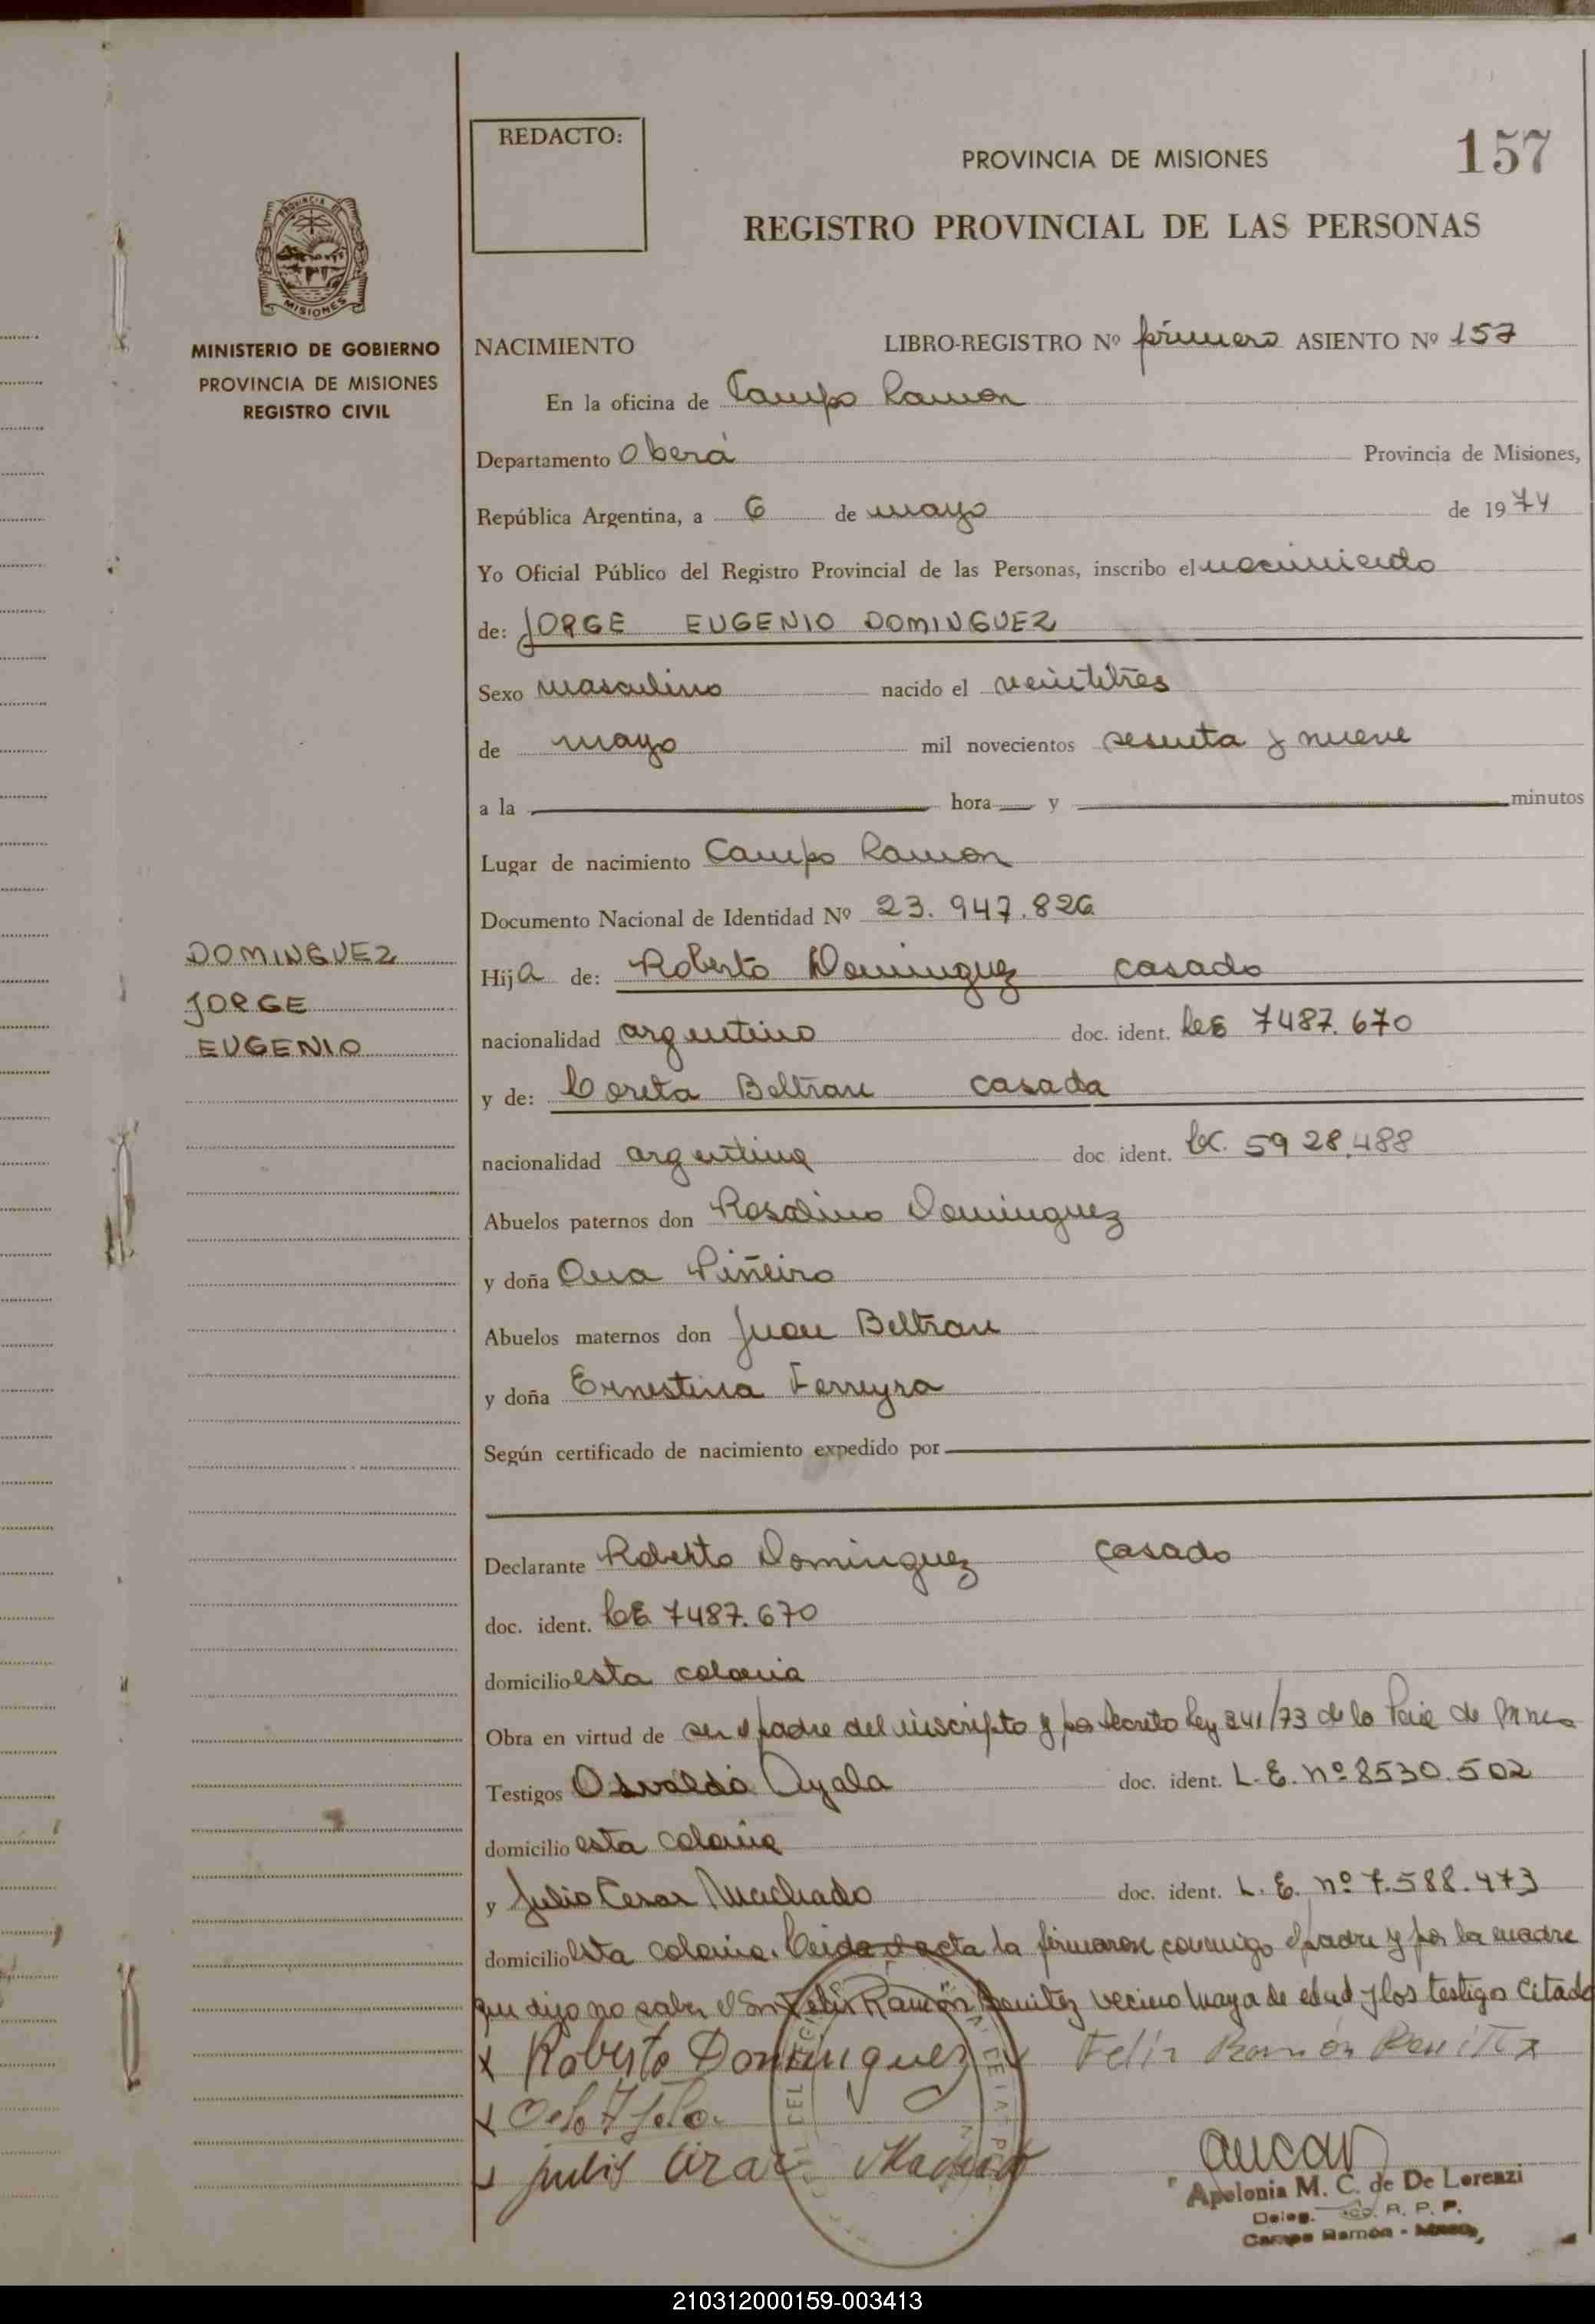 REDACTO:
PROVINCIA DE MISIONES
157
REGISTRO PROVINCIAL DE LAS PERSONAS
PROVINCIA DE
MISIONES
MINISTERIO DE GOBIERNO
PROVINCIA DE MISIONES
REGISTRO CIVIL
NACIMIENTO LIBRO-REGISTRO Nº primero ASIENTO Nº 157
En la oficina de Campo Ramon
Departamento Oberá Provincia de Misiones,
República Argentina, a 6 de mayo de 1974
Yo Oficial Público del Registro Provincial de las Personas, inscribo el nacimiento
de: JORGE EUGENIO DOMINGUEZ
Sexo masculino nacido el veintitrés
de mayo mil novecientos sesenta y nueve
a la hora y minutos
Lugar de nacimiento Campo Ramon
Documento Nacional de Identidad Nº 23.947.826
DOMINGUEZ
JORGE
EUGENIO
Hija de: Roberto Dominguez casado
nacionalidad argentino doc. ident. LE 7487.670
y de: Loreta Beltran casada
nacionalidad argentina doc ident. LC. 5928.488
Abuelos paternos don Rosalino Dominguez
y doña Ana Piñeiro
Abuelos maternos don Juan Beltran
y doña Ernestina Ferreyra
Según certificado de nacimiento expedido por
Declarante Roberto Dominguez casado
doc. ident. LE 7487.670
domicilio esta colonia
Obra en virtud de ser el padre del inscripto y por decreto Ley 241/73 de la Pcia de Mnes
Testigos Osvaldo Ayala doc. ident. L.E. nº 8530.502
domicilio esta colonia
y Julio Cesar Machado doc. ident. L.E. nº 7.588.473
domicilio esta colonia. Leida el acta la firmaron conmigo el padre y por la madre
que dijo no saber el Sr. Felix Ramón Benitez vecino mayor de edad y los testigos citado
x Roberto Dominguez Felix Ramón Benitez
Julio Cezar Machado
Apolonia M. C. de De Lorenzi
Deleg. R. P. P.
Campo Ramón - Mnes.
210312000159-003413